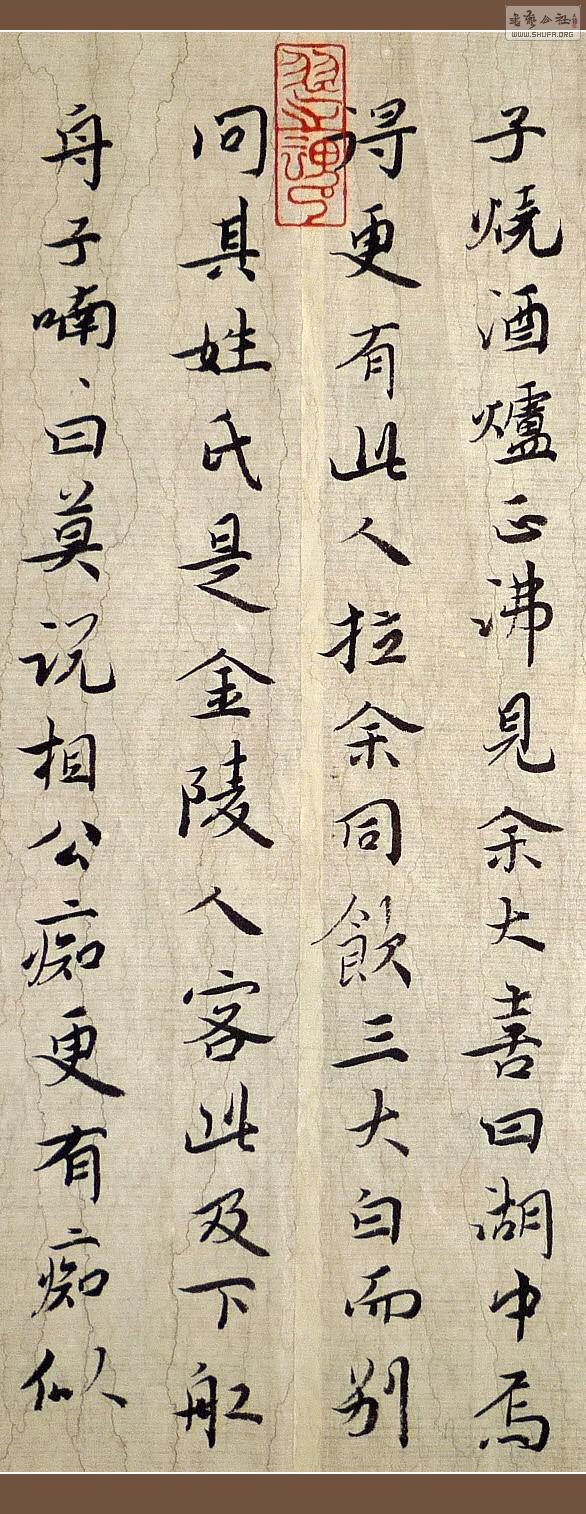 子燒酒爐正沸見余大喜曰湖中焉
得更有此人拉余同飲三大白而別
問其姓氏是金陵人客此及下舡
舟子喃〻曰莫説相公痴更有痴似
書藝公社
WWW.SHUFA.ORG